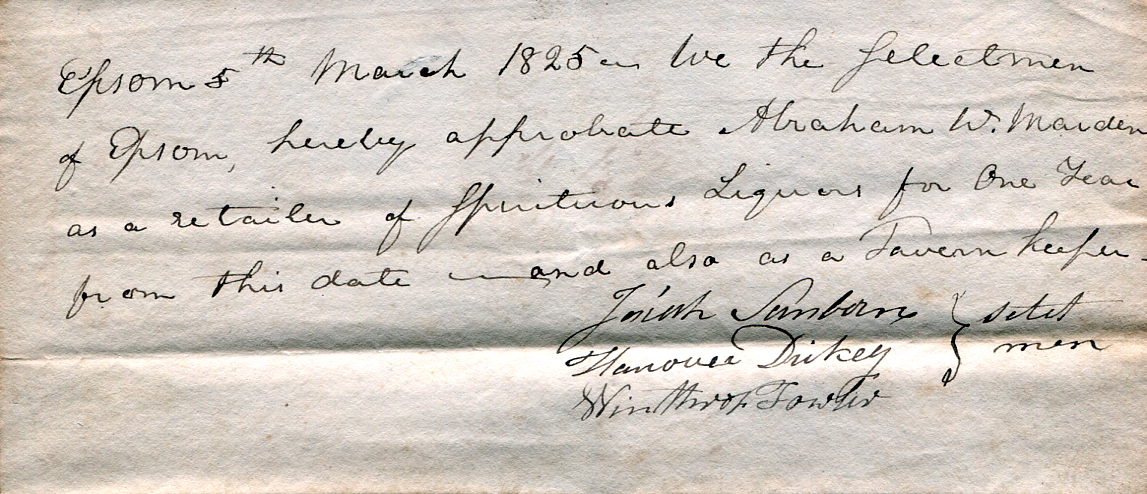 Epsom 5th March 1825 We the Selectmen
of Epsom, hereby approbate Abraham W. Marden
as a retailer of Spirituous Liquors for One Year
from this date — and also as a Tavern keeper -
Josiah Sanborn } select
Hanover Dickey } men
Winthrop Fowler